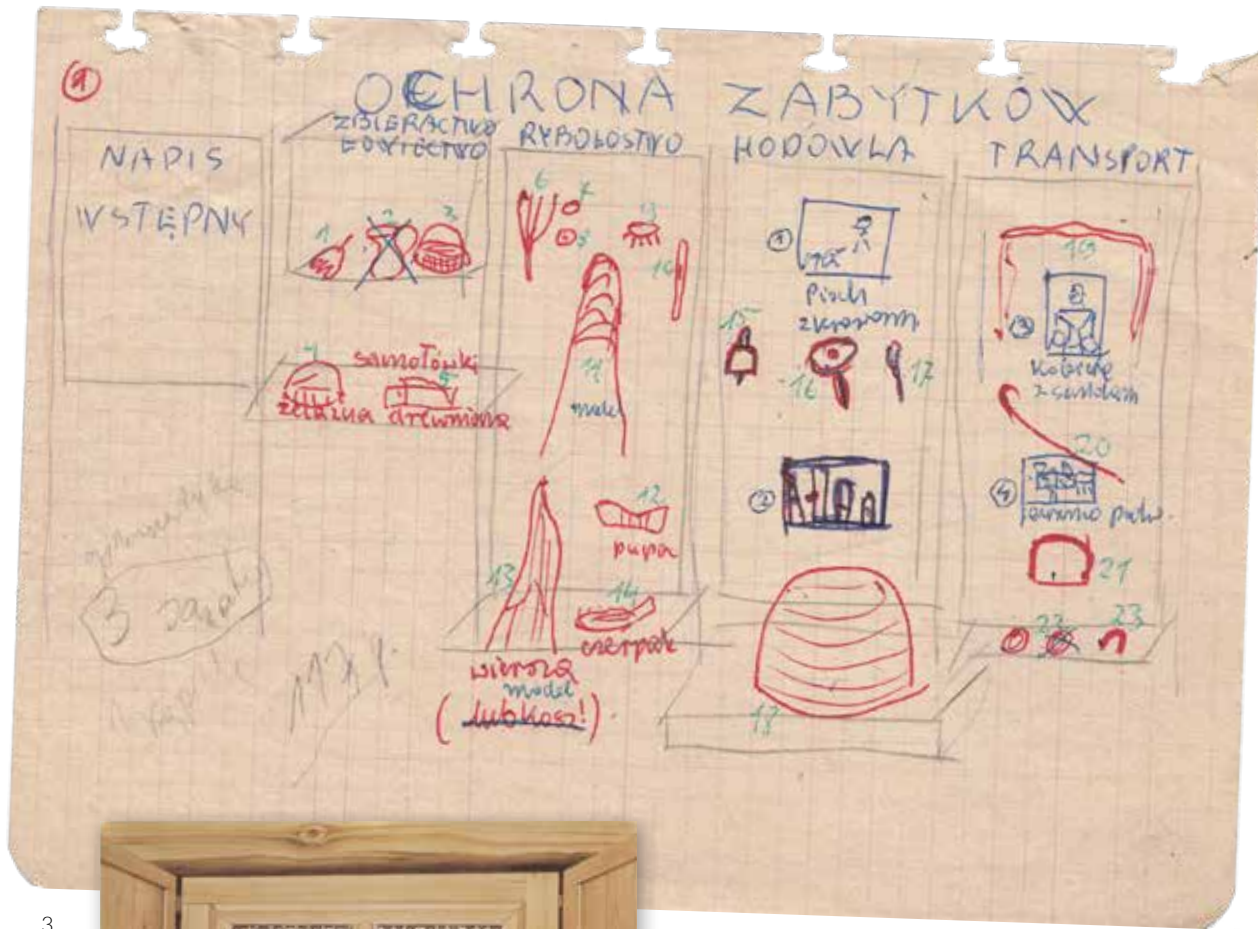 1
OCHRONA ZABYTKÓW
NAPIS
WSTĘPNY
ZBIERACTWO
ŁOWIECTWO
1 2 3
samołówki
4 5
żelazna drewniana
RYBOŁOSTWO
6 7
8 9
10
11
model
12
pupa
13
14
czerpak
wiersza
model
(lub kosz!)
HODOWLA
1
15 16 17
2
18
TRANSPORT
19
3
Kobieta
20
4
21
22 23
3
3